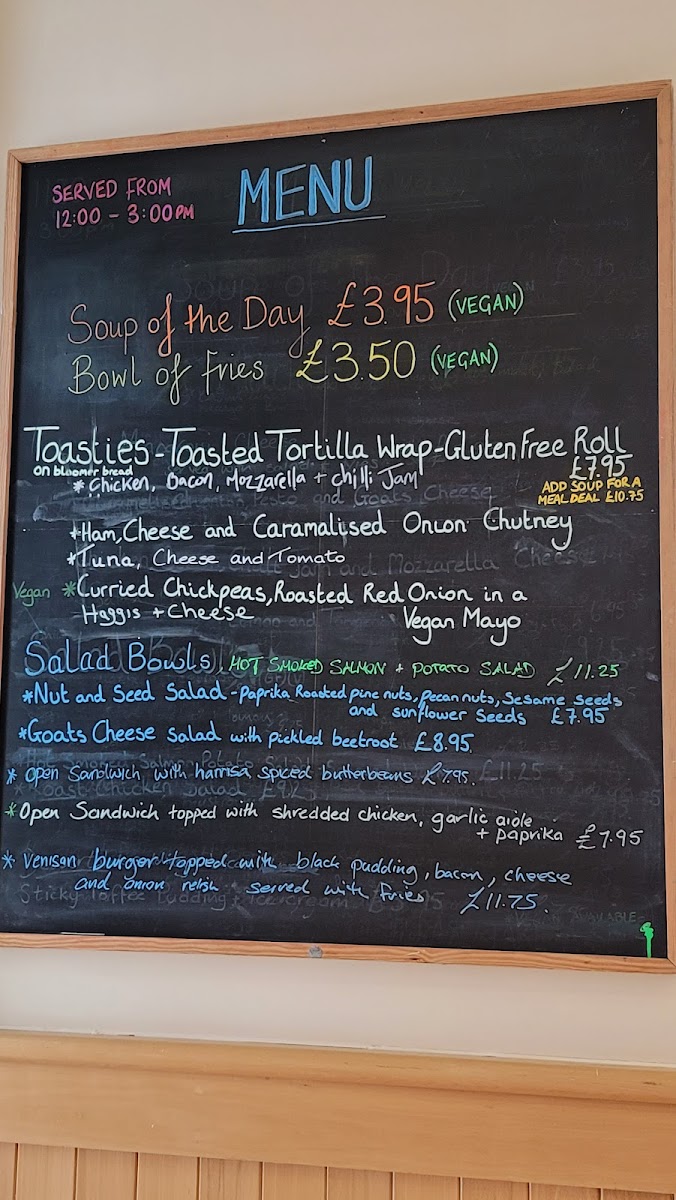 SERVED FROM
12:00 - 3:00PM
MENU
Soup of the Day £3.95 (VEGAN)
Bowl of Fries £3.50 (VEGAN)
Toasties - Toasted Tortilla Wrap - Gluten Free Roll
on bloomer bread
£7.95
* Chicken, Bacon, Mozzarella + Chilli Jam
ADD SOUP FOR A
MEAL DEAL £10.75
* Ham, Cheese and Caramalised Onion Chutney
* Tuna, Cheese and Tomato
Vegan * Curried Chickpeas, Roasted Red Onion in a
Vegan Mayo
Haggis + Cheese
Salad Bowls. HOT SMOKED SALMON + POTATO SALAD £11.25
* Nut and Seed Salad - Paprika Roasted pine nuts, pecan nuts, sesame seeds
and sunflower seeds £7.95
* Goats Cheese salad with pickled beetroot £8.95
* Open Sandwich with harrisa spiced butterbeans £7.95.
* Open Sandwich topped with shredded chicken, garlic aiole
+ paprika £7.95
* Venison burger topped with black pudding, bacon, cheese
and onion relish served with fries £11.75.